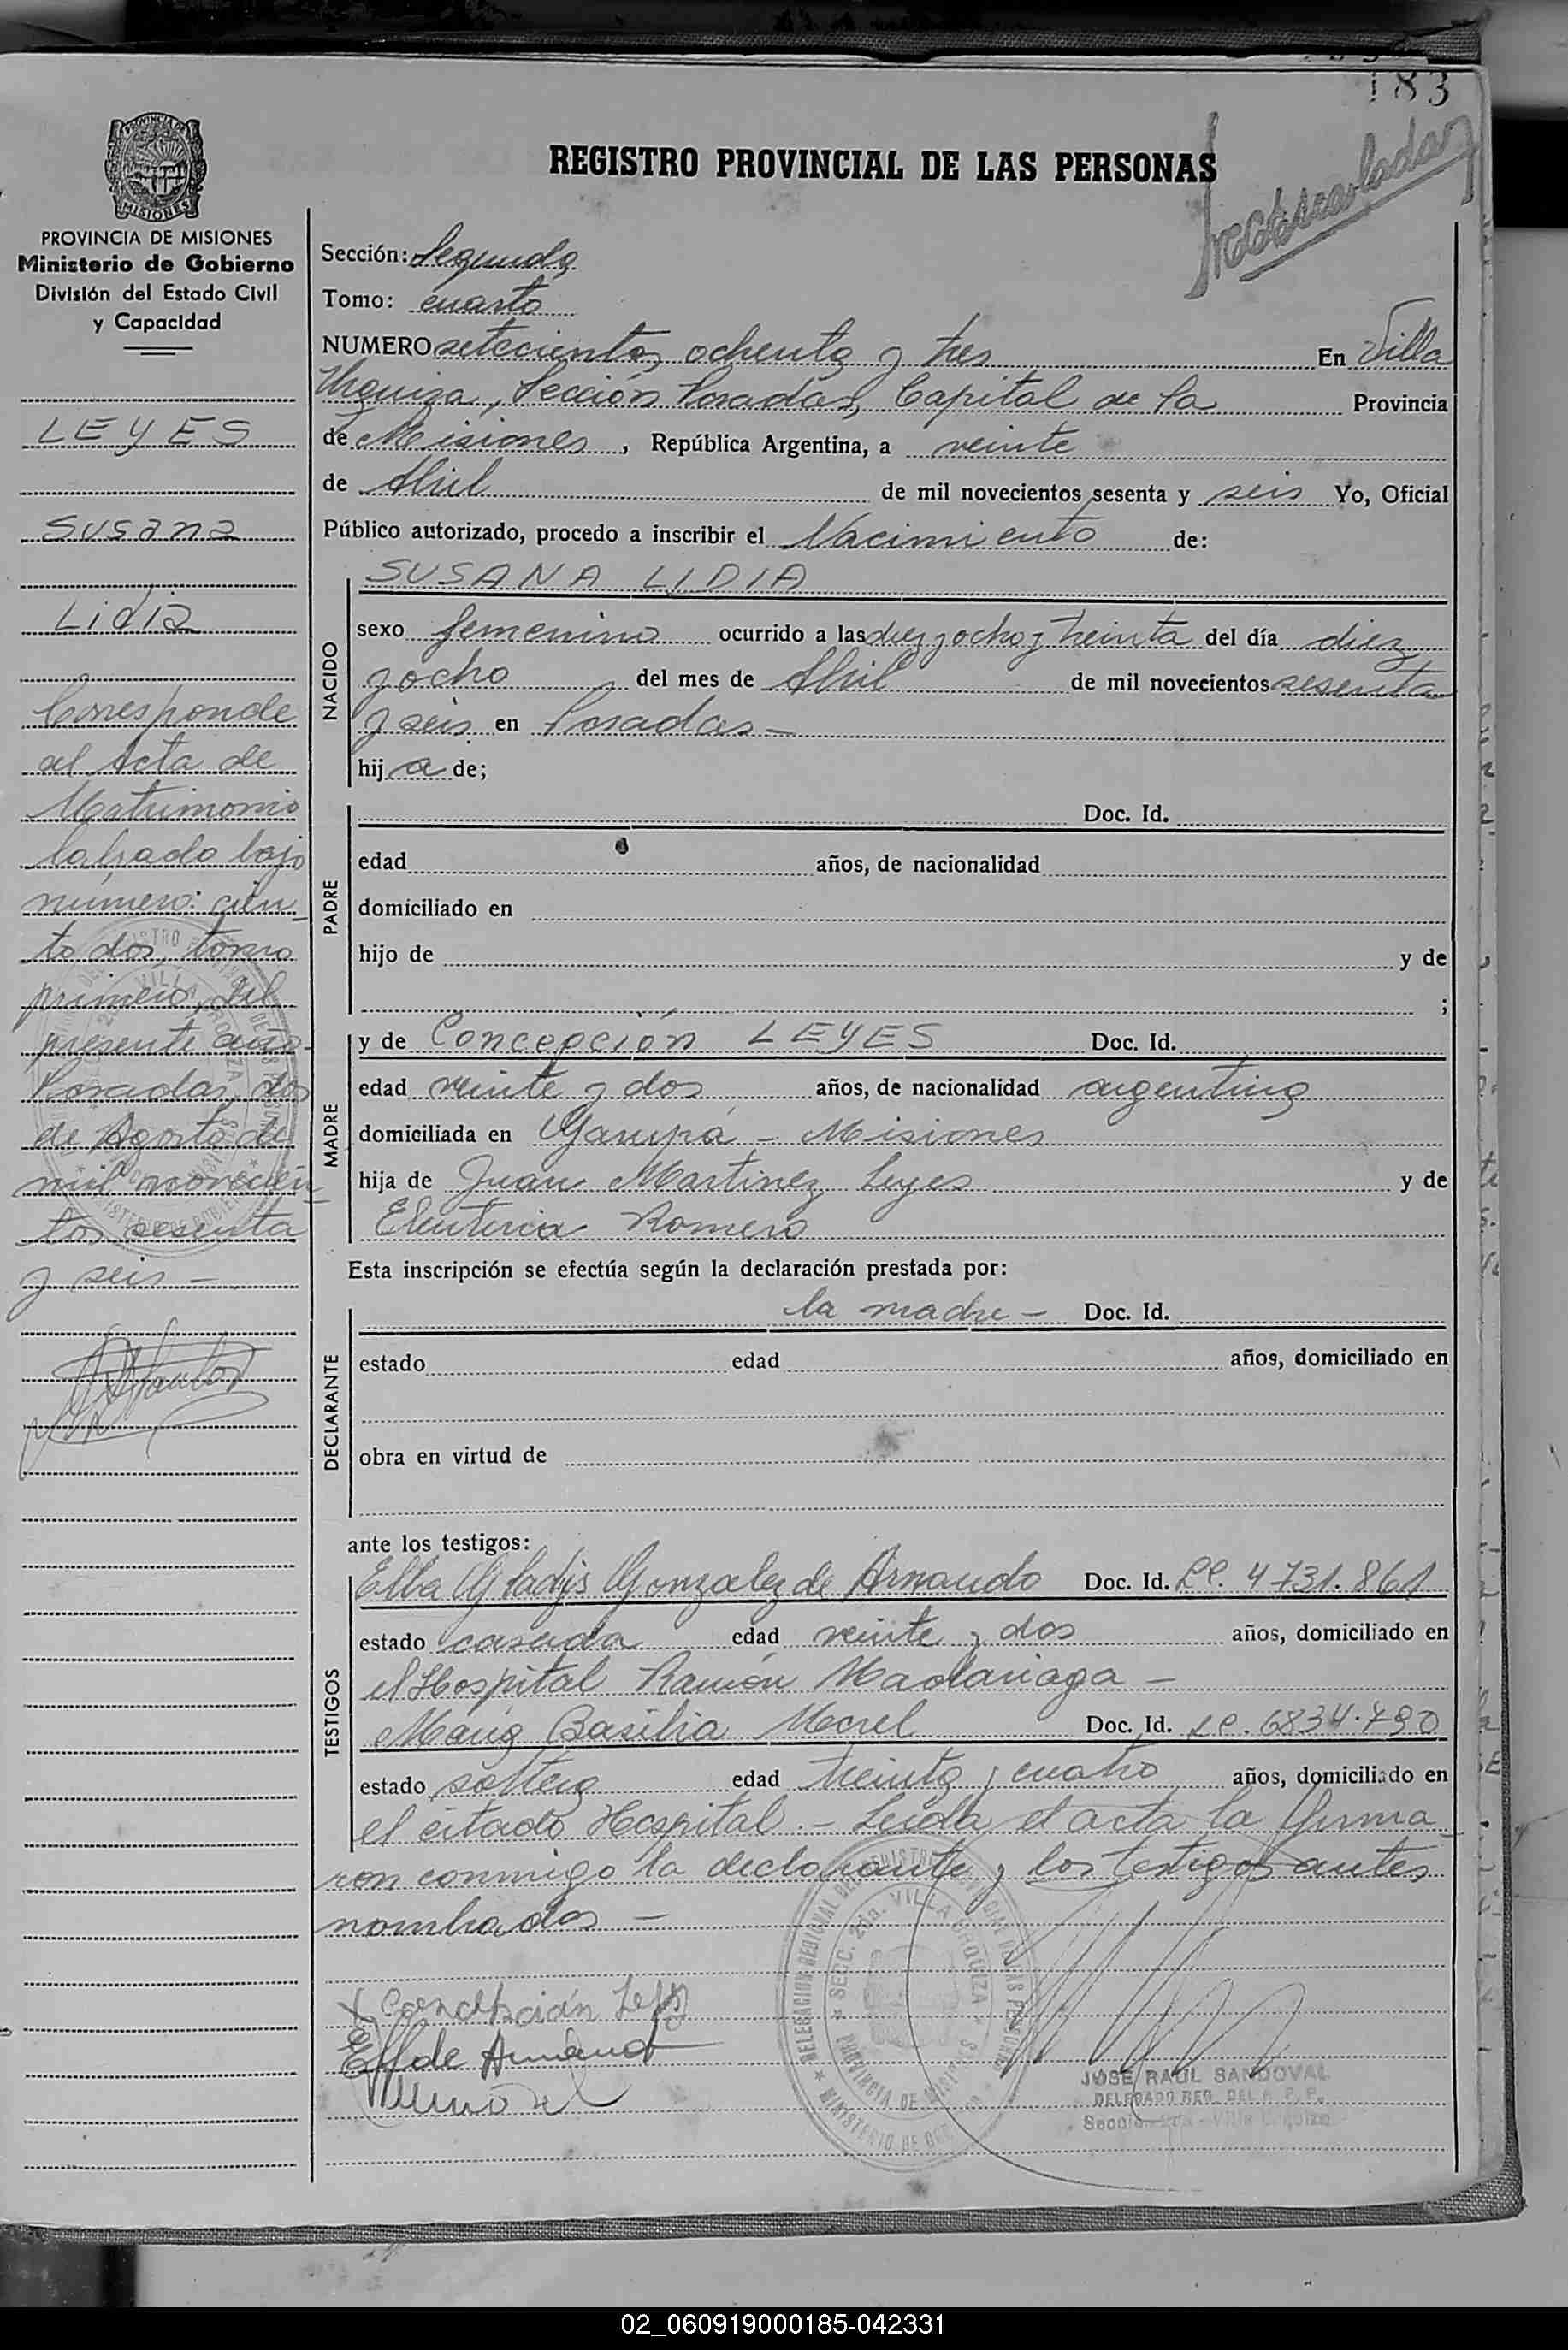 183
REGISTRO PROVINCIAL DE LAS PERSONAS
PROVINCIA DE MISIONES
Ministerio de Gobierno
División del Estado Civil
y Capacidad
LEYES
Susana
Lidia
Corresponde
al Acta de
Matrimonio
labrado bajo
número: cien
to dos, tomo
primero, del
presente año-
Posadas, dos
de Agosto de
mil novecien
tos sesenta
y seis -
Sección: Segunda
Tomo: cuarto
NUMERO setecientos ochenta y tres En Villa
Urquiza, Sección Posadas, Capital de la Provincia
de Misiones, República Argentina, a veinte
de Abril de mil novecientos sesenta y seis Yo, Oficial
Público autorizado, procedo a inscribir el Nacimiento de:
NACIDO
SUSANA LIDIA
sexo femenino ocurrido a las diez y ocho y treinta del día diez
y ocho del mes de Abril de mil novecientos sesenta
y seis en Posadas -
hija de;
PADRE
Doc. Id.
edad años, de nacionalidad
domiciliado en
hijo de y de
;
MADRE
y de Concepción LEYES Doc. Id.
edad veinte y dos años, de nacionalidad argentina
domiciliada en Garupá - Misiones
hija de Juan Martinez Leyes y de
Eleuteria Romero
Esta inscripción se efectúa según la declaración prestada por:
DECLARANTE
la madre - Doc. Id.
estado edad años, domiciliado en
obra en virtud de
ante los testigos:
TESTIGOS
Elba Gladys Gonzalez de Arnaudo Doc. Id. LC. 4731.861
estado casada edad veinte y dos años, domiciliado en
el Hospital Ramón Madariaga -
María Basilia Morel Doc. Id. LC. 6834.790
estado soltera edad treinta y cuatro años, domiciliado en
el citado Hospital. - Leida el acta la firma
ron conmigo la declarante y los testigos antes
nombrados -
x Concepción Leyes
JOSE RAUL SANDOVAL
DELEGADO REG. DEL R. P. P.
SECC. 2da. VILLA URQUIZA
PROVINCIA DE MISIONES
02_060919000185-042331